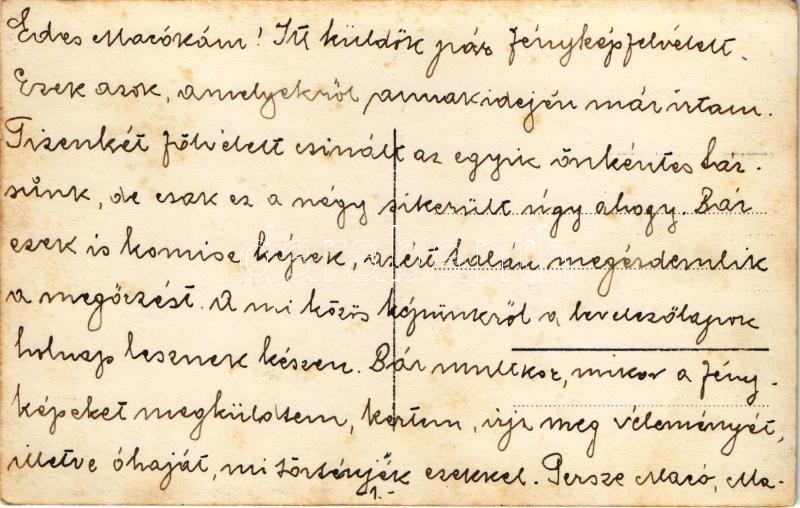 Édes Macókám! Itt küldök pár fényképfelvételt.
Ezek azok, amelyekről annakidején már írtam.
Tizenkét fölvételt csinált az egyik önkéntes tár-
sünk, de csak ez a négy sikerült úgy ahogy. Bár
ezek is komisz képek, azért talán megérdemlik
a megőrzést. A mi közös képünkről a levelezőlapok
holnap lesznek készen. Bár multkor, mikor a fény-
képeket megküldtem, kértem, írja meg véleményét,
illetve óhaját, mi történjék ezekkel. Persze Macó, Ma-
1.-